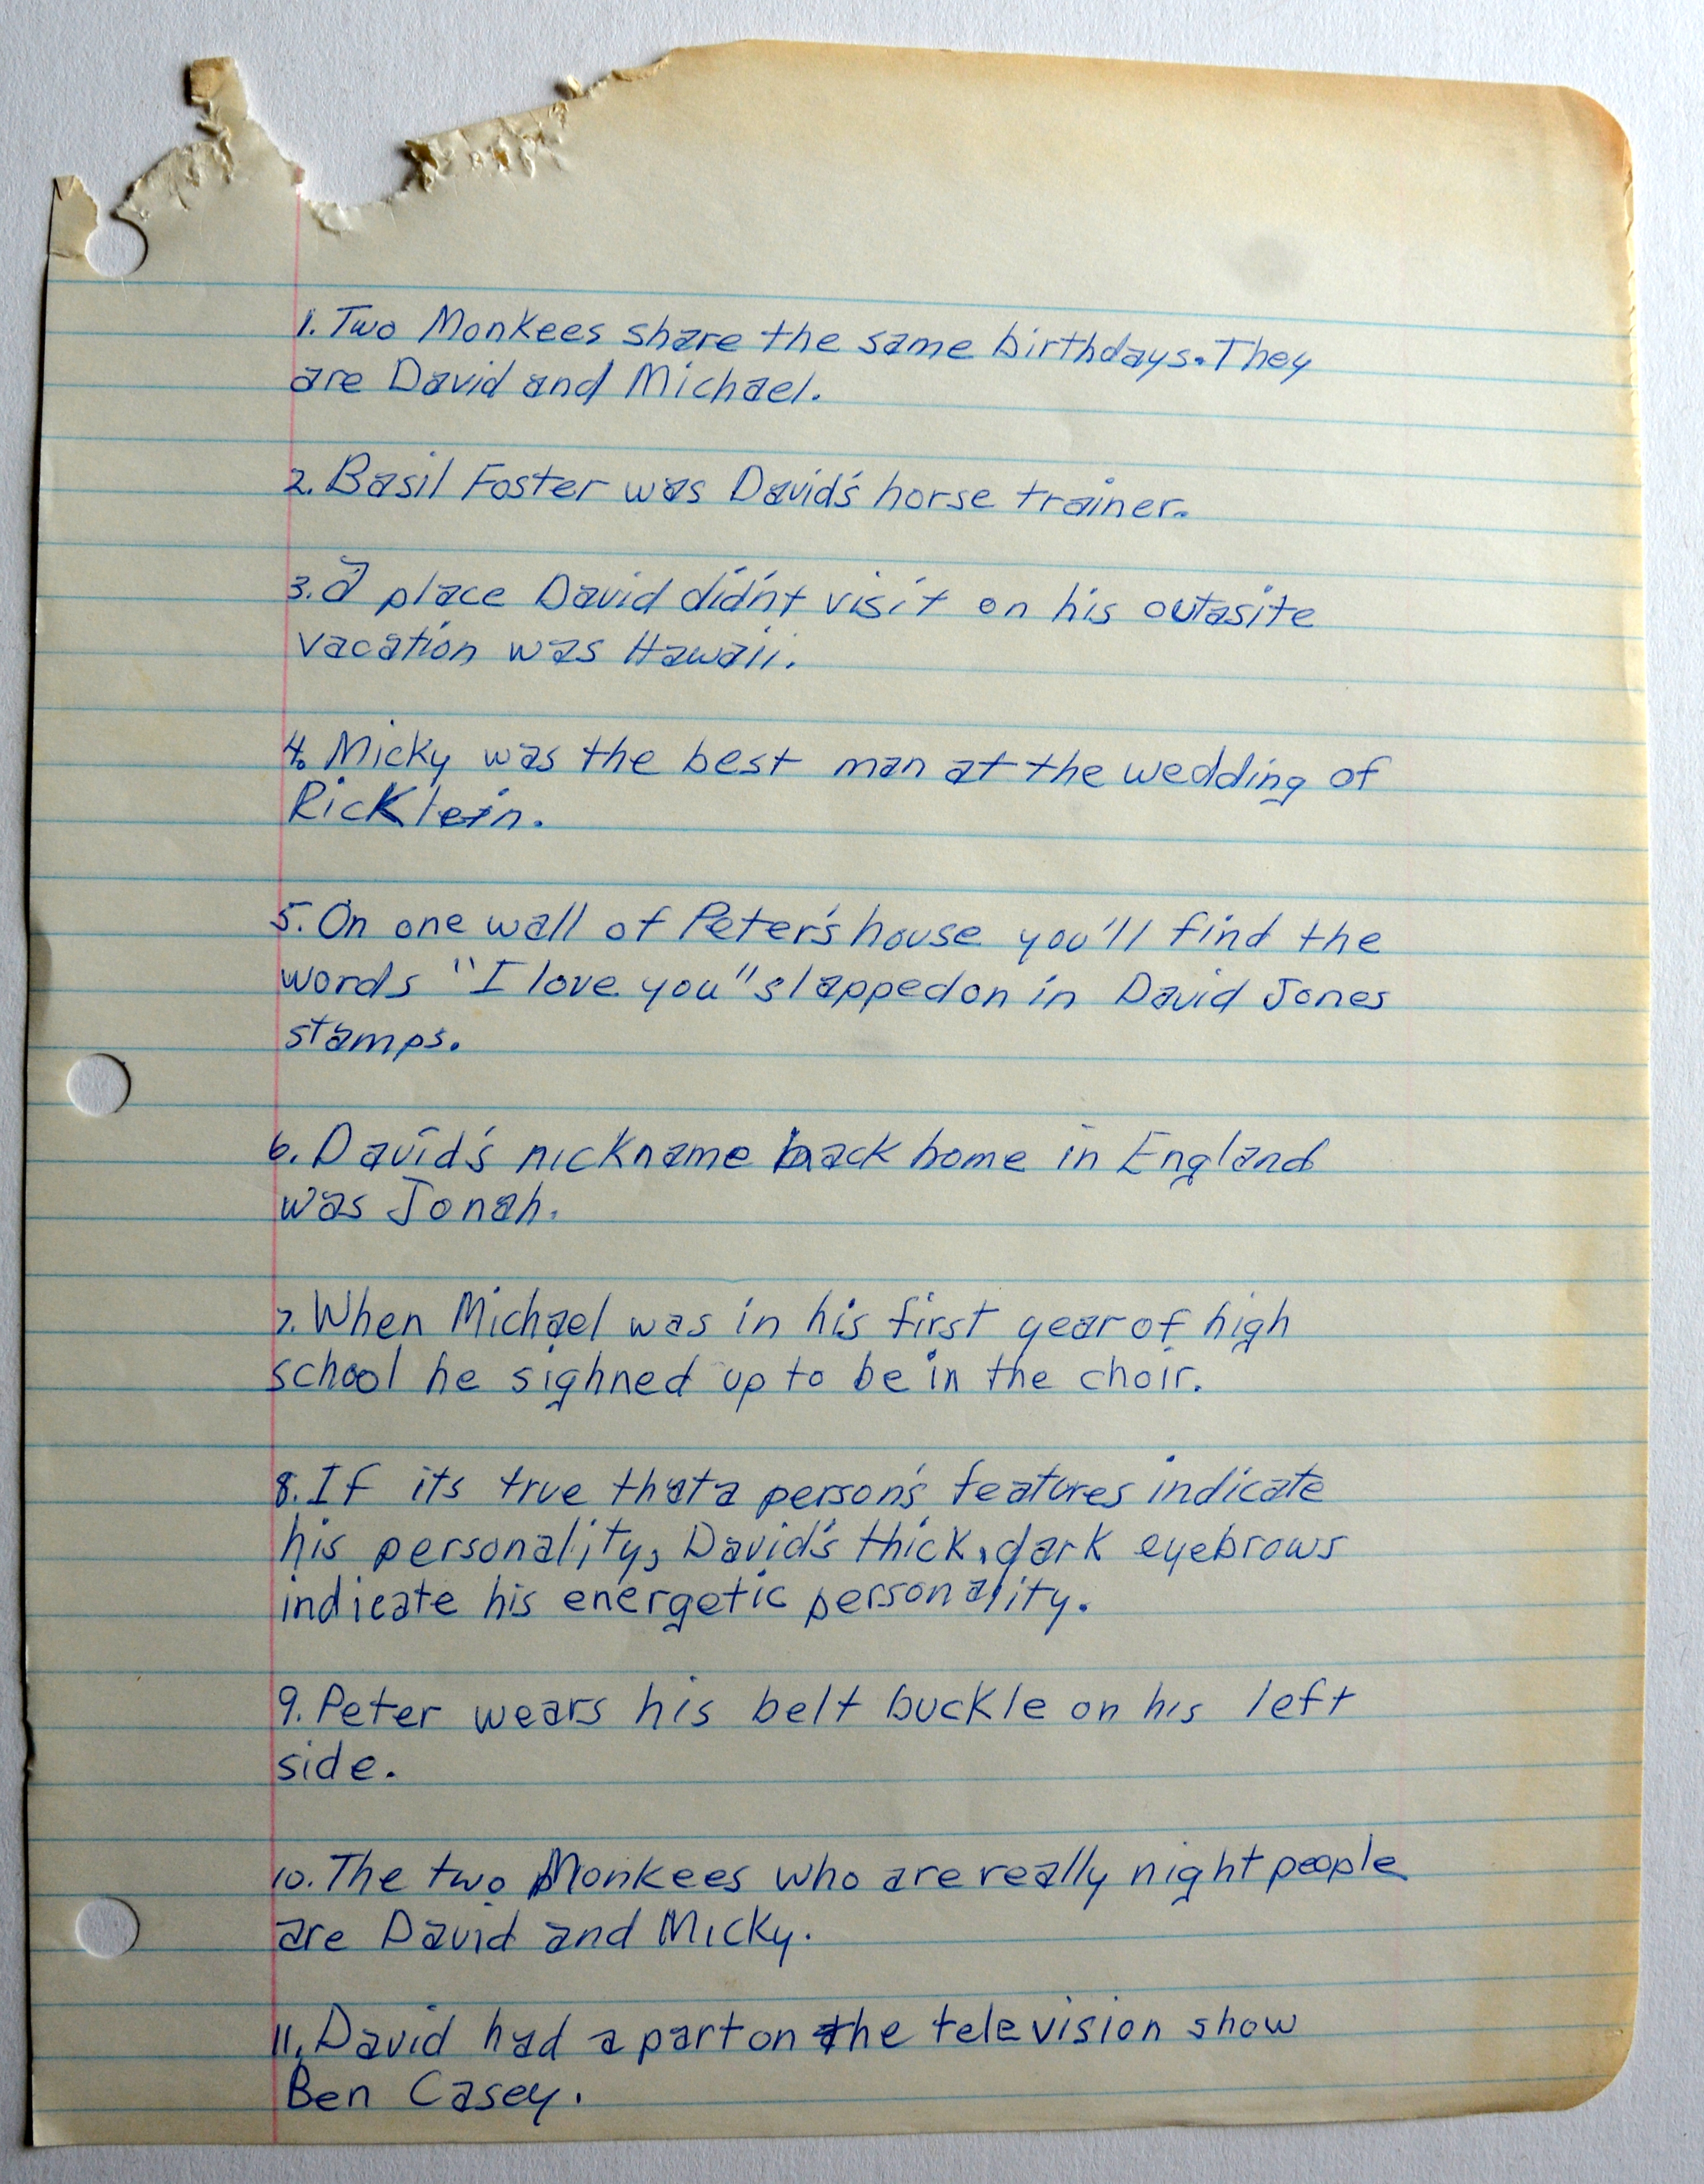 1. Two Monkees share the same birthdays. They
are David and Michael.
2. Basil Foster was David's horse trainer.
3. A place David didn't visit on his outasite
vacation was Hawaii.
4. Micky was the best man at the wedding of
Ric Klein.
5. On one wall of Peter's house you'll find the
words "I love you" slapped on in David Jones
stamps.
6. David's nickname back home in England
was Jonah.
7. When Michael was in his first year of high
school he sighned up to be in the choir.
8. If its true that a person's features indicate
his personality, David's thick, dark eyebrows
indicate his energetic personality.
9. Peter wears his belt buckle on his left
side.
10. The two Monkees who are really night people
are David and Micky.
11. David had a part on the television show
Ben Casey.